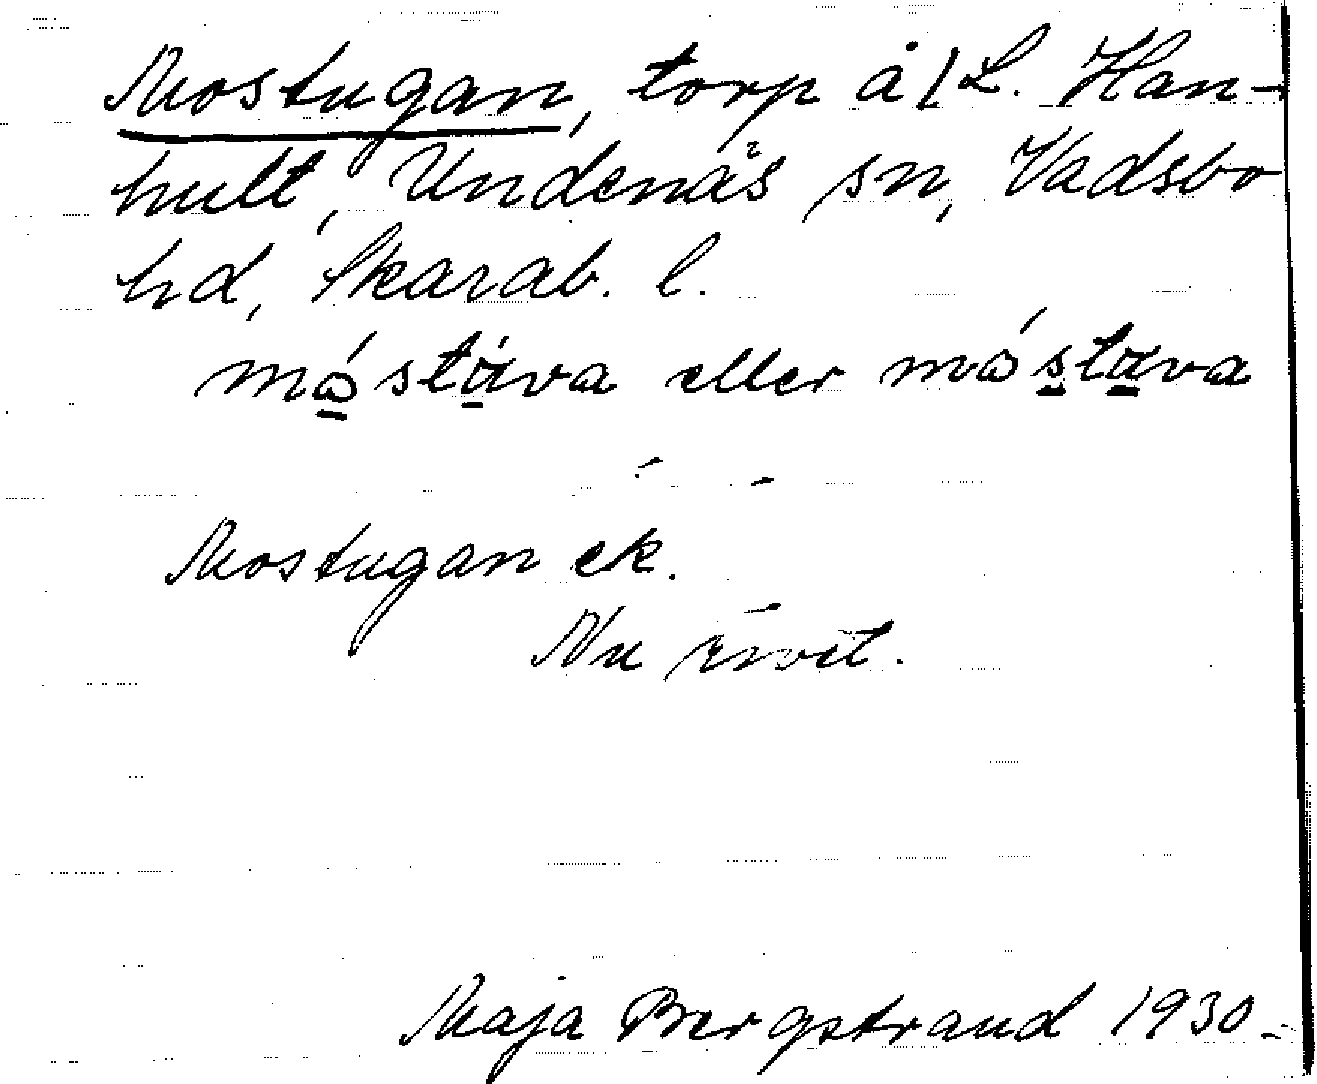 Mostugan, torp å 1 L. Han-
hult, Undenäs sn, Vadsbo
hd, Skarab. l.
måstöva eller måstava
Mostugan ek.
Nu rivet.
Maja Bergstrand 1930.